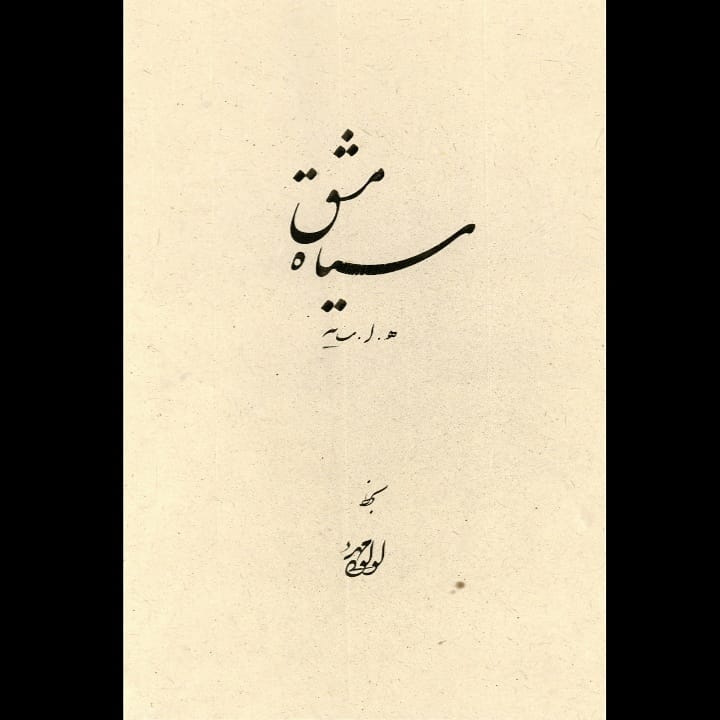 سیاه مشق
ه . ا . سایه
بخط